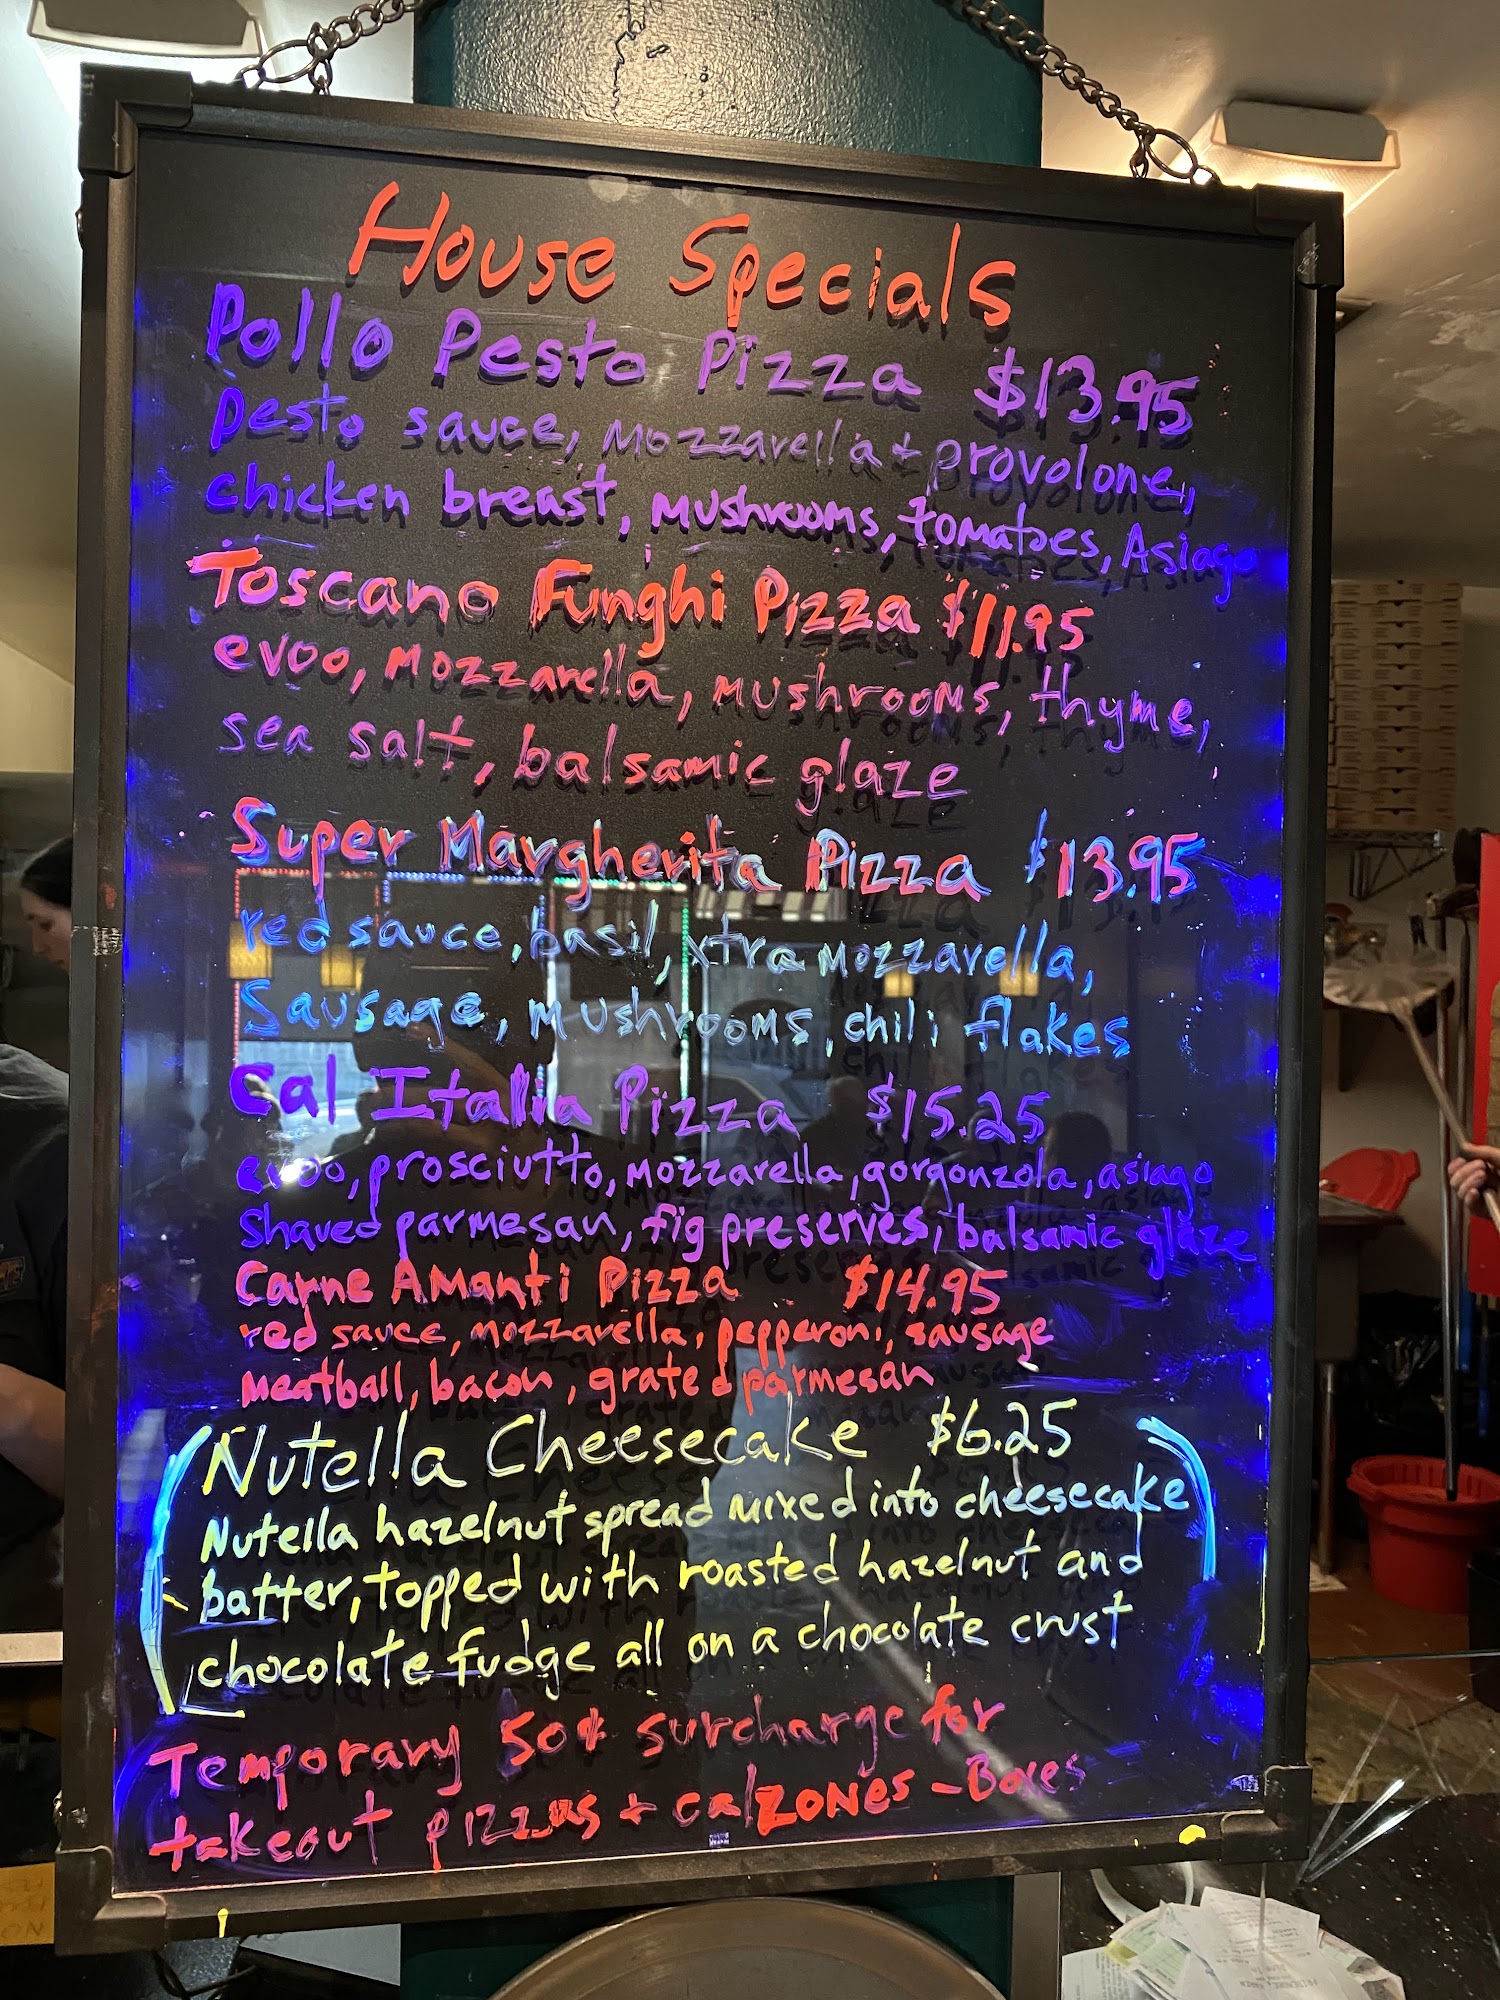 House Specials
Pollo Pesto Pizza $13.95
pesto sauce, mozzarella + provolone,
chicken breast, mushrooms, tomatoes, Asiago
Toscano Funghi Pizza $11.95
evoo, mozzarella, mushrooms, thyme,
sea salt, balsamic glaze
Super Margherita Pizza $13.95
red sauce, basil, xtra mozzarella,
Sausage, mushrooms, chili flakes
Cal Italia Pizza $15.25
evoo, prosciutto, mozzarella, gorgonzola, asiago
Shaved parmesan, fig preserves, balsamic glaze
Carne Amanti Pizza $14.95
red sauce, mozzarella, pepperoni, sausage
meatball, bacon, grated parmesan
Nutella Cheesecake $6.25
Nutella hazelnut spread mixed into cheesecake
batter, topped with roasted hazelnut and
chocolate fudge all on a chocolate crust
Temporary 50¢ surcharge for
takeout pizzas + calzones - Boxes